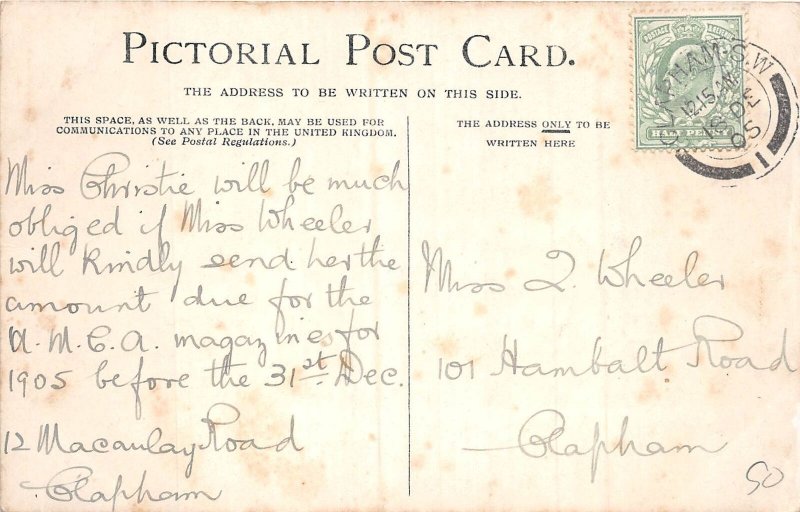 PICTORIAL POST CARD.
THE ADDRESS TO BE WRITTEN ON THIS SIDE.
THIS SPACE, AS WELL AS THE BACK, MAY BE USED FOR
COMMUNICATIONS TO ANY PLACE IN THE UNITED KINGDOM.
(See Postal Regulations.)
Miss Christie will be much
obliged if Miss Wheeler
will kindly send her the
amount due for the
M.C.A. magazines for
1905 before the 31st Dec.
12 Macaulay Road
Clapham
THE ADDRESS ONLY TO BE
WRITTEN HERE
Miss Q. Wheeler
101 Hambalt Road
Clapham
POSTAGE
HALF PENNY
CLAPHAM. S.W
12.15 AM
DE
05
1
50